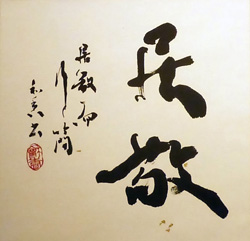 居敬
居敬而
行簡